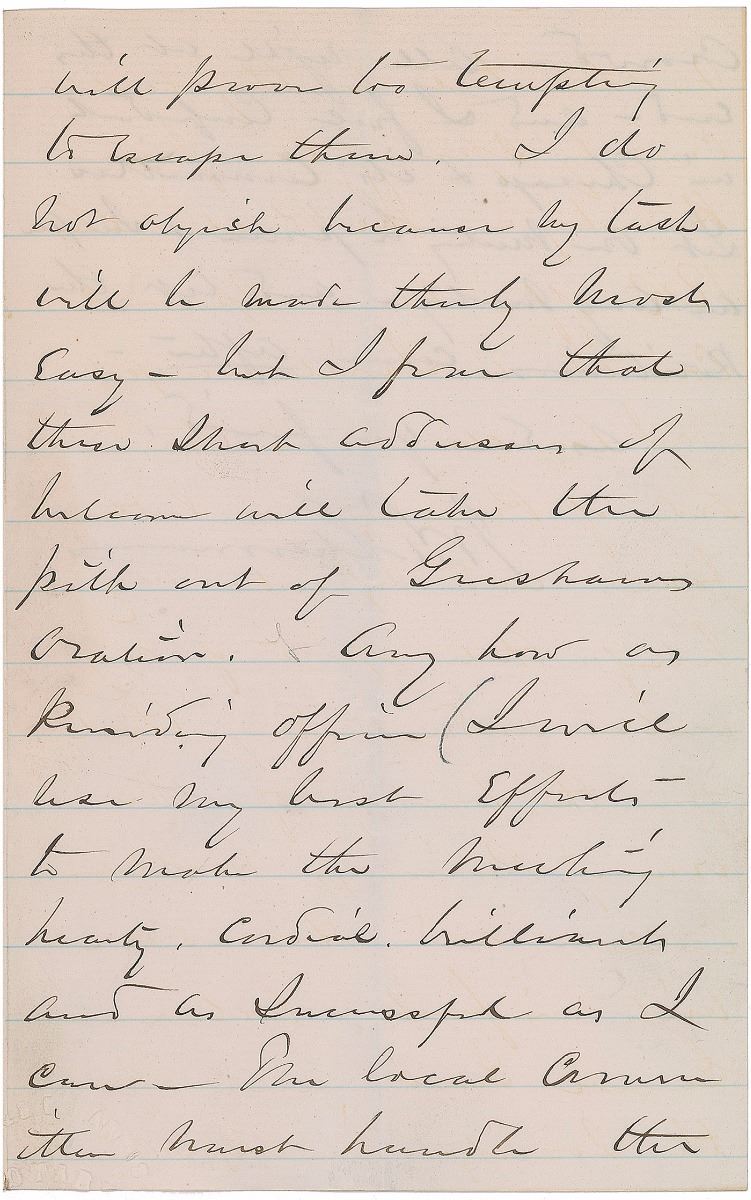 will prove too tempting
to escape them. I do
not object because my task
will be made thereby most
Easy – but I fear that
these short addresses of
welcome will take the
pith out of Greshams
Oration. & Any how as
Presiding officer (I will
use my best Efforts
to make the Meeting
hearty, Cordial, brilliant
and as Successful as I
can – The local Comm
ittee must handle the